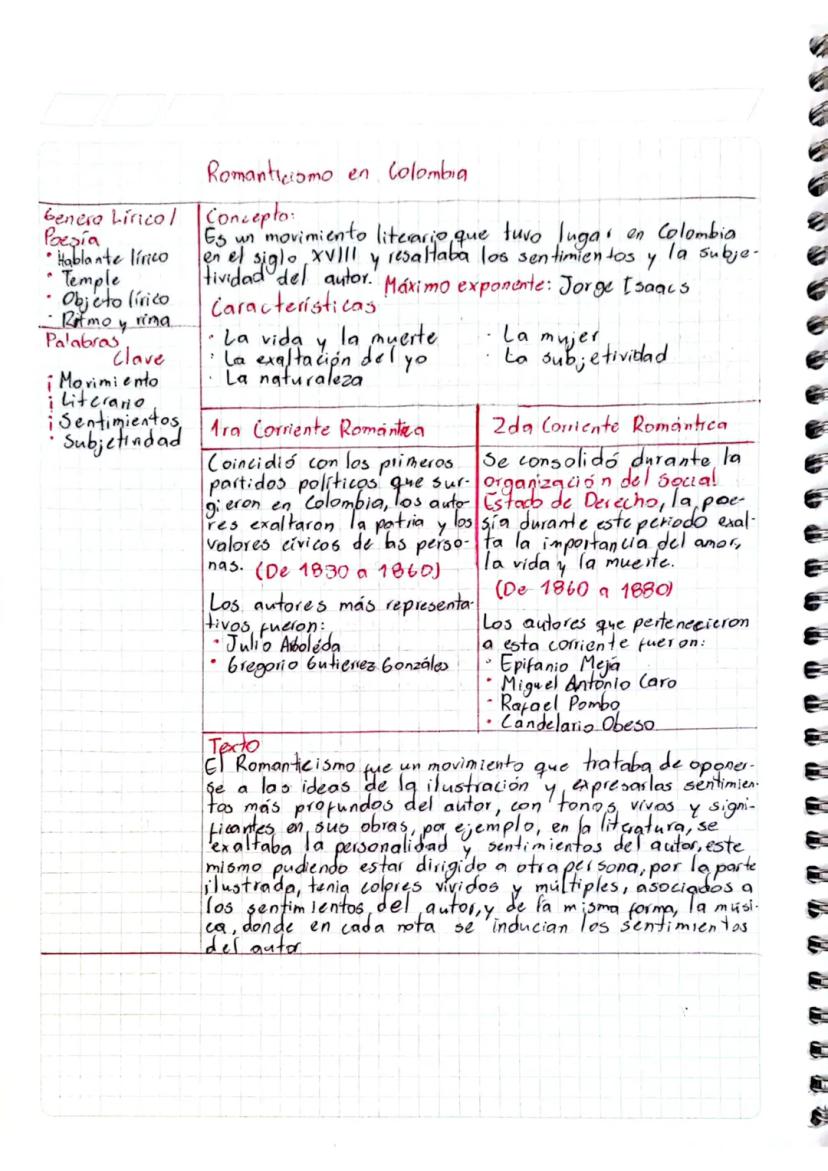 Romanticismo en Colombia
Genero Lírico/
Poesía
• Hablante lírico
• Temple
• Objeto lírico
• Ritmo y rima
Palabras
Clave
¡ Movimiento
¡ Literario
¡ Sentimientos
• Subjetividad
Concepto:
Es un movimiento literario que tuvo lugar en Colombia
en el siglo XVIII y resaltaba los sentimientos y la subje-
tividad del autor. Máximo exponente: Jorge Isaacs
Características
• La vida y la muerte
• La exaltación del yo
• La naturaleza
• La mujer
• La subjetividad
1ra Corriente Romántica
Coincidió con los primeros
partidos políticos que sur-
gieron en Colombia, los auto-
res exaltaron la patria y los
valores cívicos de las perso-
nas. (De 1830 a 1860)
Los autores más representa-
tivos fueron:
• Julio Arboleda
• Gregorio Gutierrez González
2da Corriente Romántica
Se consolidó durante la
organización del Social
Estado de Derecho, la poe-
sía durante este periodo exal-
ta la importancia del amor,
la vida y la muerte.
(De 1860 a 1880)
Los autores que pertenecieron
a esta corriente fueron:
• Epifanio Mejá
• Miguel Antonio Caro
• Rafael Pombo
• Candelario Obeso
Texto
El Romanticismo fue un movimiento que trataba de oponer-
se a las ideas de la ilustración y expresarlas sentimien-
tos más profundos del autor, con tonos vivos y signi-
ficantes en sus obras, por ejemplo, en la literatura, se
exaltaba la personalidad y sentimientos del autor, este
mismo pudiendo estar dirigido a otra persona, por la parte
ilustrada, tenia colores vívidos y múltiples, asociados a
los sentimientos del autor, y de la misma forma, la músi-
ca, donde en cada nota se inducian los sentimientos
del autor